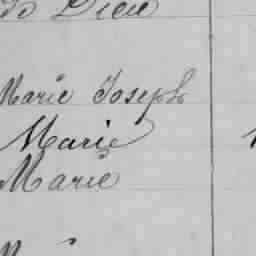 Dieu
Marie Joseph
Marie
Marie